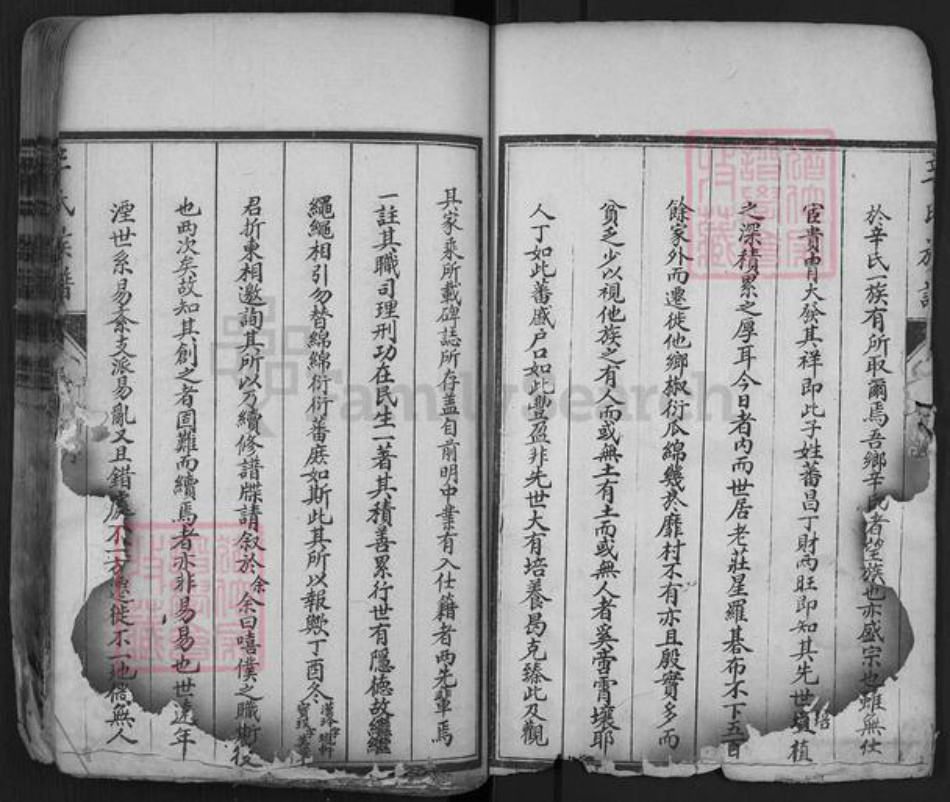 於辛氏一族有所取爾焉吾鄉辛氏者望族也亦盛宗也雖無仕
宦貴冑大發其祥即此子姓蕃昌丁財兩旺即知其先世培植
之深積累之厚耳今日者內而世居老莊星羅碁布不下五百
餘家外而遷徙他鄉椒衍瓜綿幾於靡村不有亦且殷實多而
貧乏少以視他族之有人而或無土有土而或無人者奚啻霄壤耶
人丁如此蕃盛戶口如此豐盈非先世大有培養曷克臻此及觀
其家乘所載碑誌所存蓋自前明中業有入仕籍者兩先輩焉
一註其職司理刑功在民生一著其積善累行世有隱德故繼繼
繩繩相引勿替綿綿衍衍蕃庶如斯此其所以報歟丁酉冬
君折柬相邀詢其所以乃續修譜牒請叙於余余曰嘻僕之職斯役
也兩次矣故知其創之者固難而續焉者亦非易易也世遠年
湮世系易紊支派易亂又且錯處不一方遷徙不一地儻無人
辛氏族譜
FamilySearch